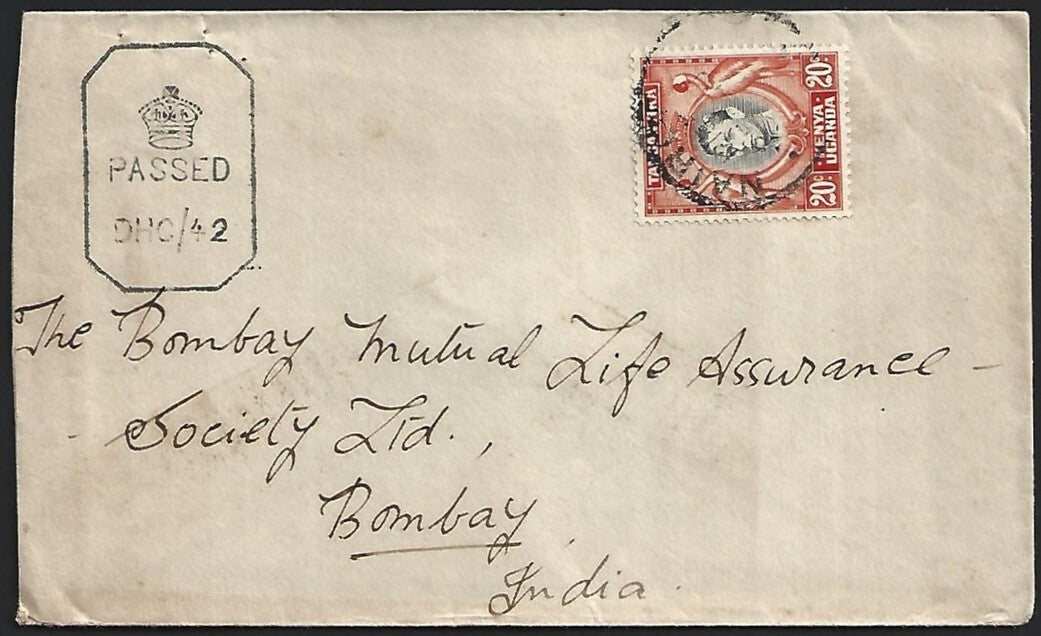 PASSED
DHC/42
20c
20c
KENYA-
UGANDA
The Bombay Mutual Life Assurance -
- Society Ltd.,
Bombay,
India.